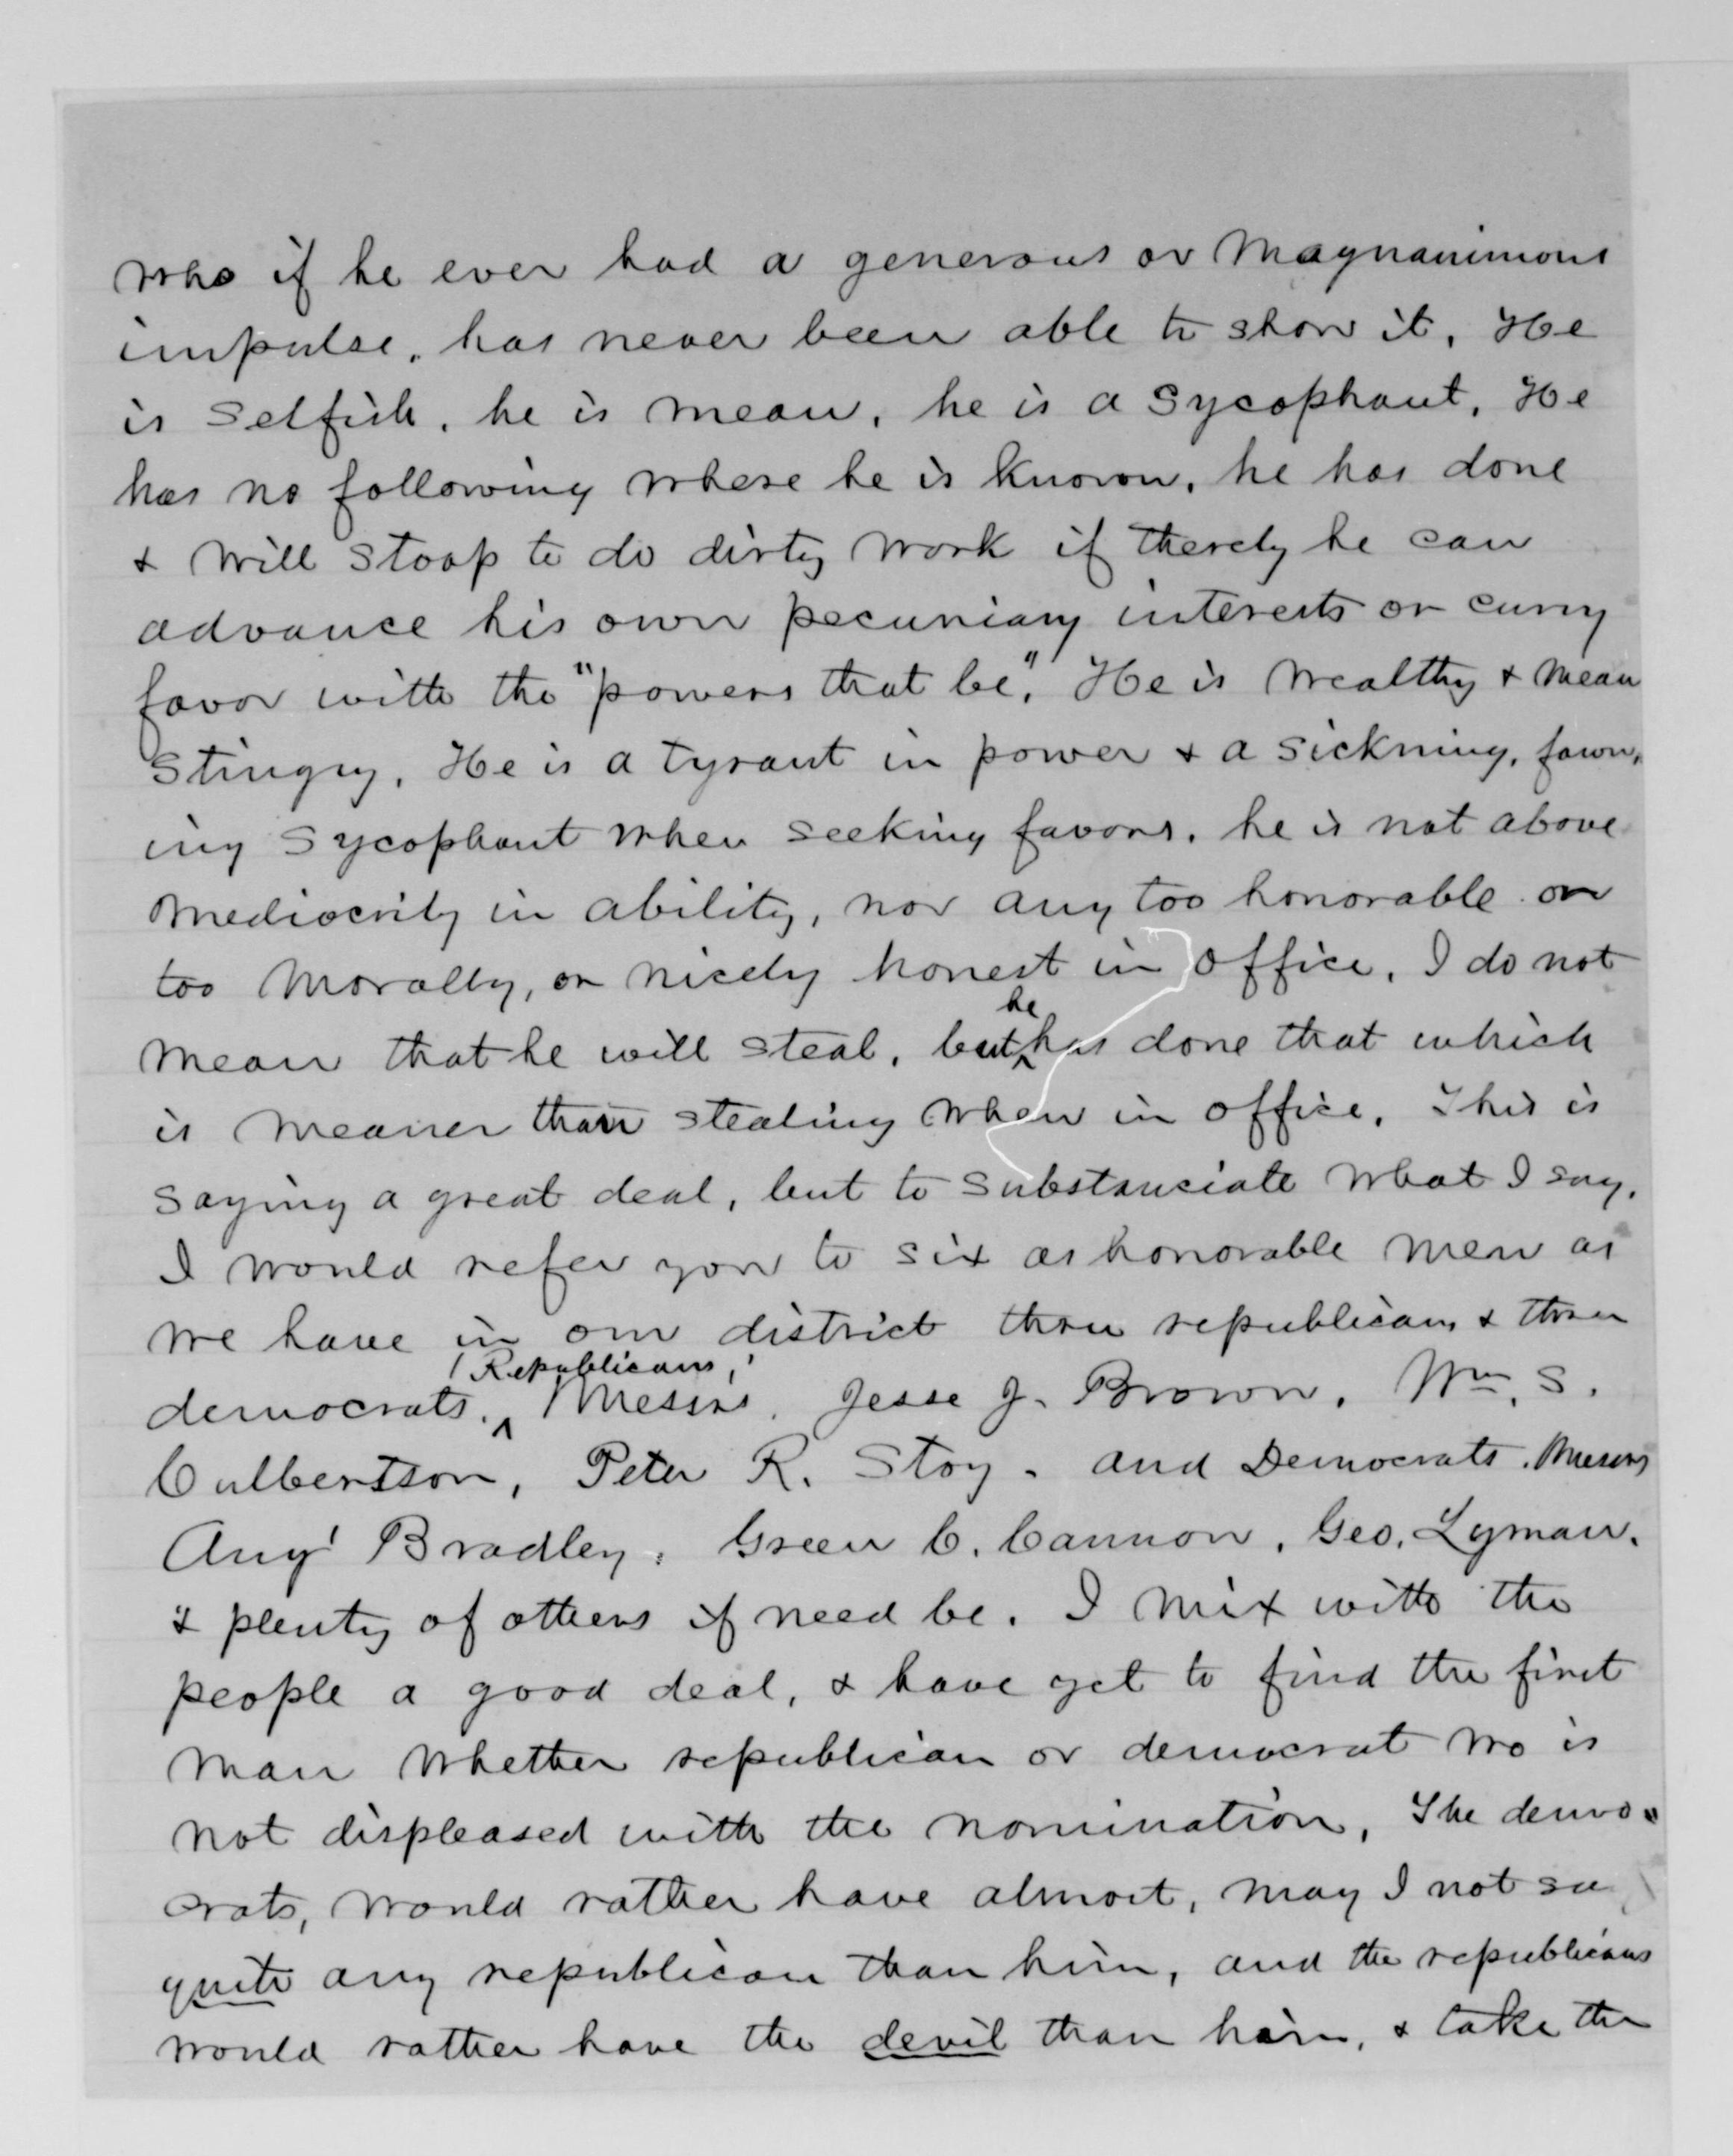 who if he ever had a generous or magnanimous
impulse, has never been able to show it. He
is selfish, he is mean, he is a sycophant. He
has no following where he is known, he has done
& will stoop to do dirty work if thereby he can
advance his own pecuniary interests or curry
favor with the "powers that be," He is wealthy & mean
stingy. He is a tyrant in power & a sickning, fawn-
ing sycophant when seeking favors. he is not above
mediocrity in ability, nor any too honorable or
too morally, or nicely honest in office. I do not
mean that he will steal, but he has done that which
is meaner than stealing when in office. This is
saying a great deal, but to substanciate what I say,
I would refer you to six as honorable men as
we have in our district three republicans & three
democrats. (Republicans,) Messrs. Jesse J. Brown, Wm. S.
Culbertson, Peter R. Stoy. and Democrats. Messrs
Aug' Bradley, Green C. Cannon, Geo. Lyman.
& plenty of others if need be. I mix with the
people a good deal, & have yet to find the first
man whether republican or democrat who is
not displeased with the nomination. The demo-
crats, would rather have almost, may I not say
quite any republican than him, and the republicans
would rather have the devil than him, & take the